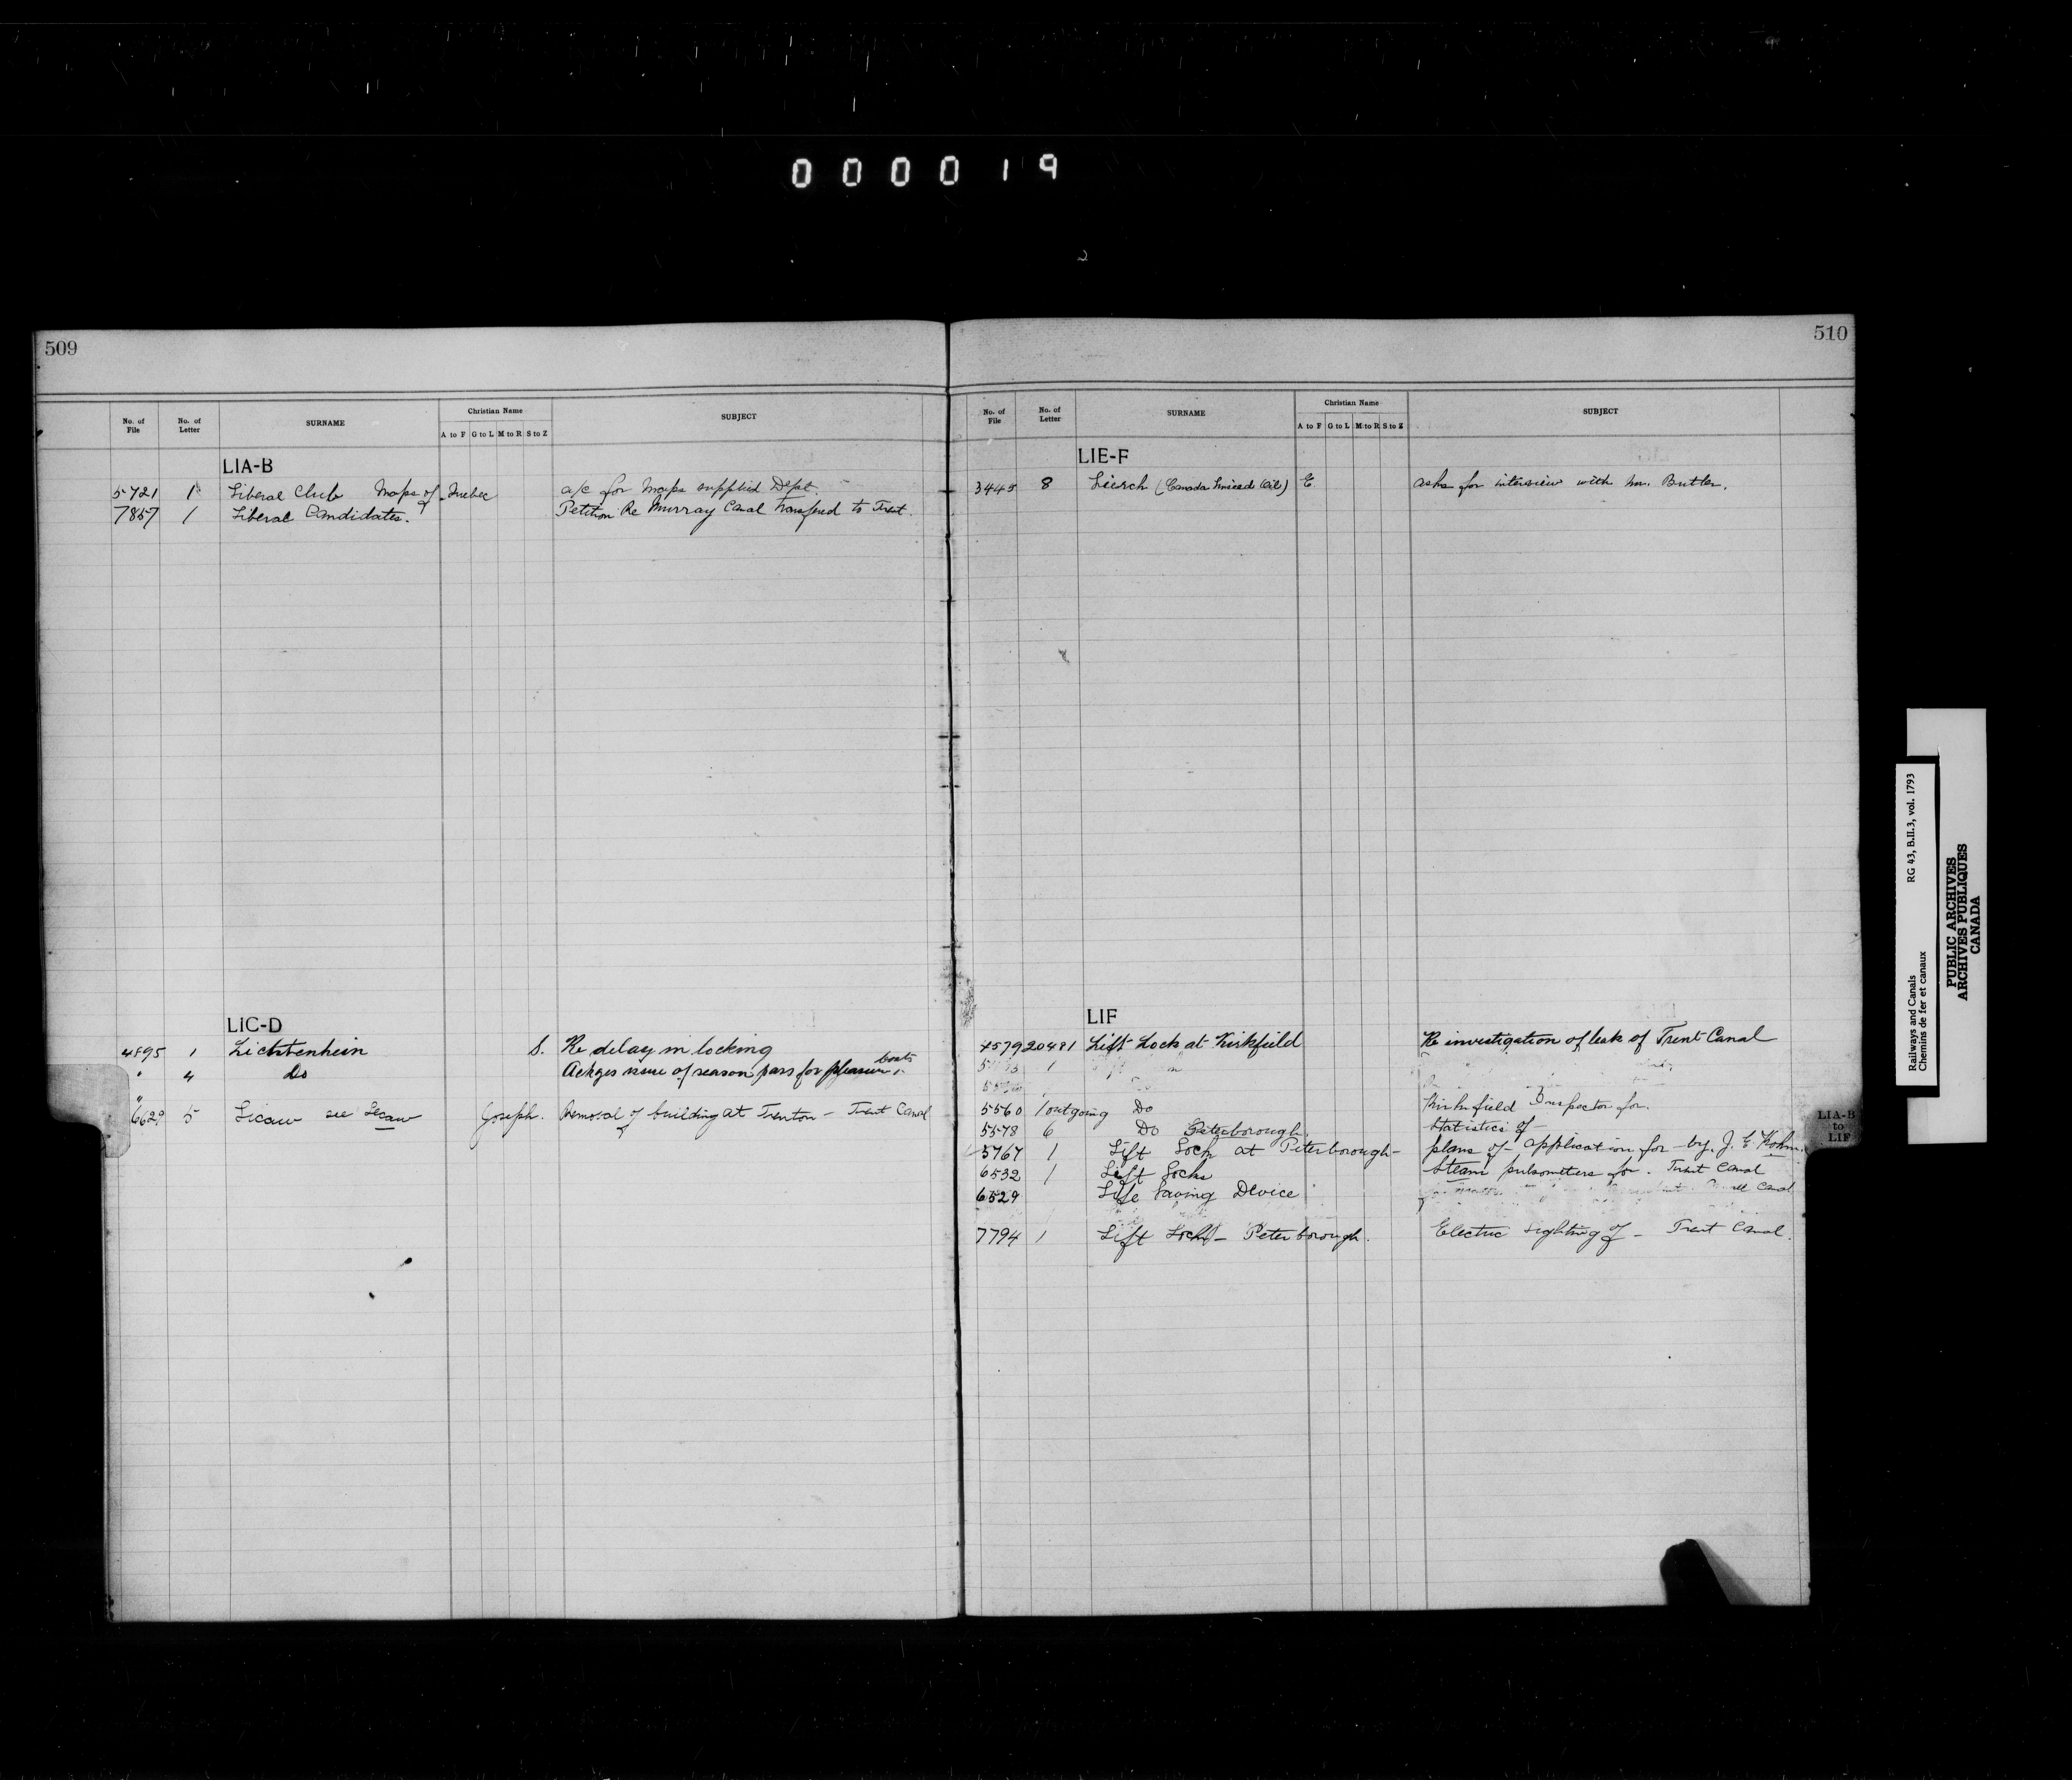 000019
2
509
No. of File No. of Letter SURNAME Christian Name SUBJECT
A to F G to L M to R S to Z
LIA-B
5721 1 Liberal Club Maps of - Quebec a/c for Maps supplied Dept
7857 1 Liberal Candidates. Petition Re Murray Canal transfered to Trent.
LIC-D
4895 1 Lichtenhein S. Re delay in locking
" 4 Do Ackges issue of season pass for pleasure boats
6629 5 Licaw see Lecaw Joseph. Removal of building at Trenton - Trent Canal
510
No. of File No. of Letter SURNAME Christian Name SUBJECT
A to F G to L M to R S to Z
LIE-F
3445 8 Liersch (Canada Linseed Oil) E asks for interview with Mr. Butler.
LIF
4579 20481 Lift Lock at Kirkfield Re investigation of leak of Trent Canal
5560 1 outgoing Do Kirkfield Inspector for.
5578 6 Do Peterborough Statistics of -
5767 1 Lift Lock at Peterborough - plans of - application for - by J. E. Kohm.
6532 1 Lift Locks Steam pulsometers for. Trent Canal
6529 Life Saving Device Canal
7794 1 Lift Lock - Peterborough. Electric Lighting of - Trent Canal.
LIA-B
to
LIF
Railways and Canals RG 43, B.II.3, vol. 1793
Chemins de fer et canaux
PUBLIC ARCHIVES
ARCHIVES PUBLIQUES
CANADA